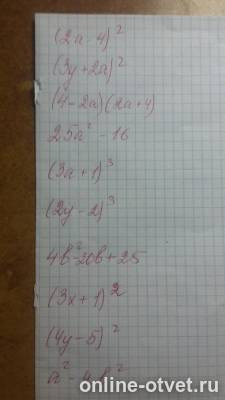 (2a-4)²
(3y+2a)²
(4-2a)(2a+4)
25a²-16
(3a+1)³
(2y-2)³
4b²-20b+25
(3x+1)²
(4y-5)²
a²-4b²
online-otvet.ru